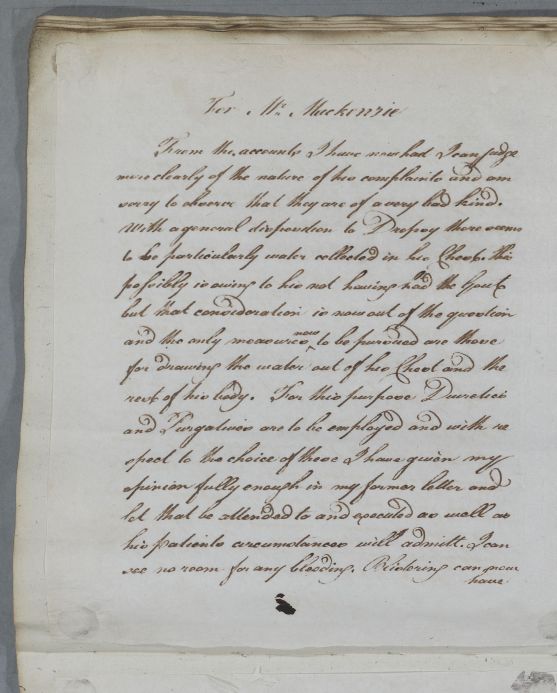 For Mr. Mackenzie
From the accounts I have now had I can judge
more clearly of the nature of his complaints and am
sorry to observe that they are of a very bad kind.
With a general disposition to Dropsy there seems
to be particularly water collected in his Chest. this
possibly is owing to his not having had the Gout
but that consideration is now out of the question
and the only measures now to be pursued are those
for drawing the water out of his Chest and the
rest of his body. For this purpose Diuretics
and Purgatives are to be employed and with re
spect to the choice of these I have given my
opinion fully enough in my former letter and
let that be attended to and executed as well as
his patients circumstances will admitt. I can
see no room for any bleeding. Blistering can now
have